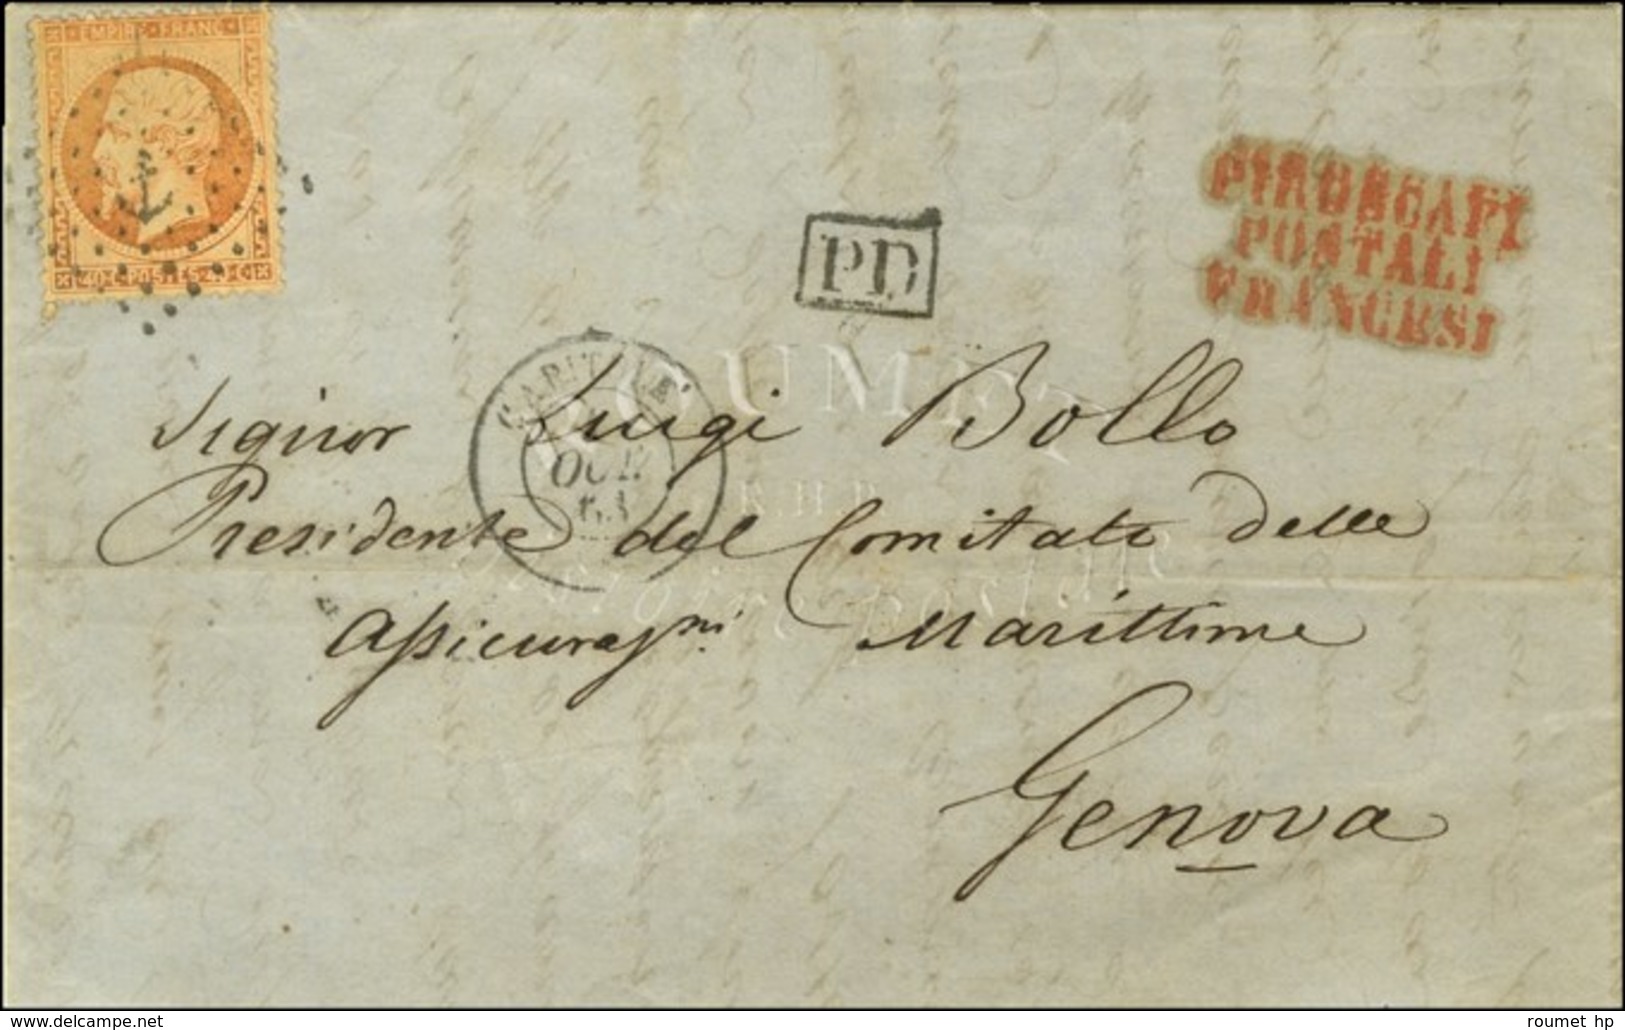 EMPIRE FRANC
40 C POSTES 40 C
PD
PIROSCAFI
POSTALI
FRANCESI
ROUMET
Signor Luigi Bollo
OCT.
63
Presidente del Comitato delle
Histoire postale
Marittime
Genova
www.delcampe.net
roumet hp